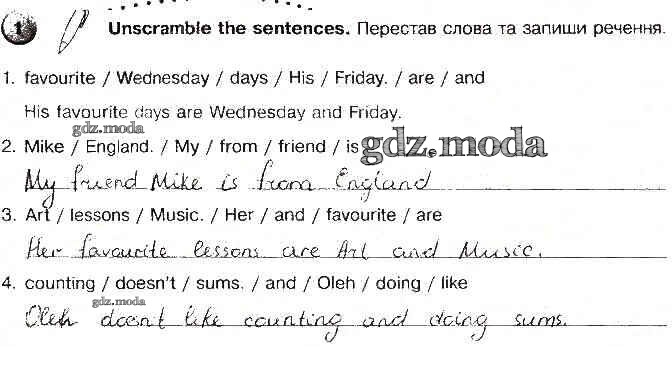 1 Unscramble the sentences. Перестав слова та запиши речення.
1. favourite / Wednesday / days / His / Friday. / are / and
His favourite days are Wednesday and Friday.
gdz.moda
2. Mike / England. / My / from / friend / is gdz.moda
My friend Mike is from England
3. Art / lessons / Music. / Her / and / favourite / are
Her favourite lessons are Art and Music.
4. counting / doesn't / sums. / and / Oleh / doing / like
gdz.moda
Oleh doesn't like counting and doing sums.